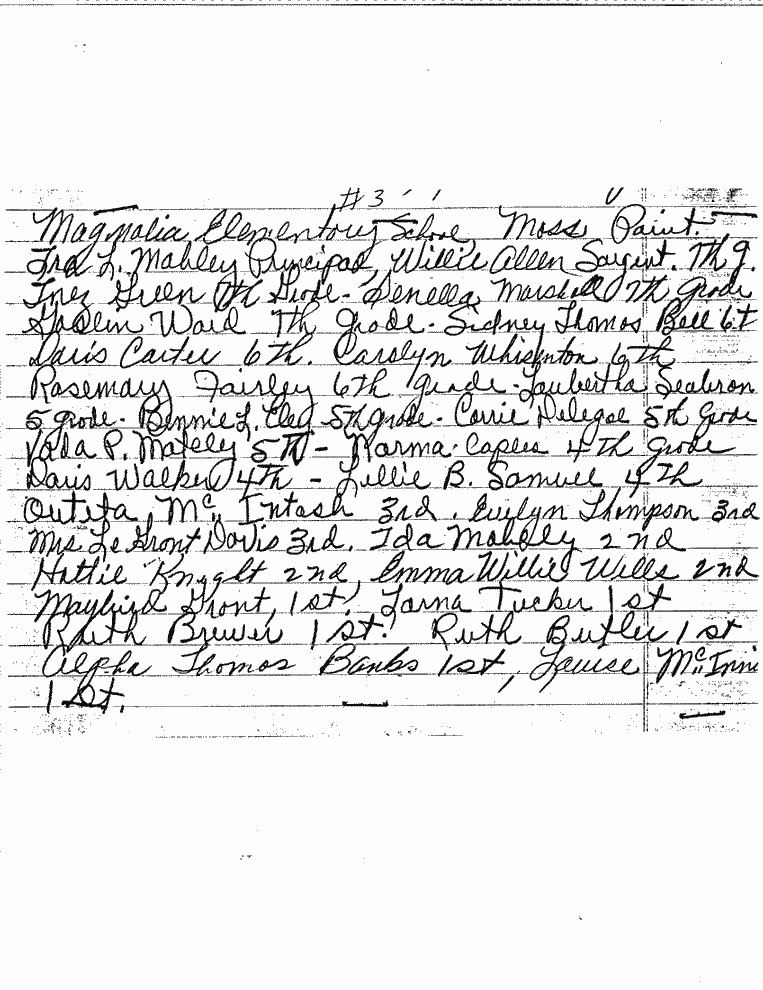 #3
Magnolia Elementary School, Moss Point.
Ira L. Mabley Principal, Willie Allen Sargent. 7th g.
Inez Green 7th Grade - Denella Marshall 7th grade
Ward 7th grade - Sidney Thomas Bell 6t
Doris Carter 6th. Carolyn Whisenton 6th
Rosemary Fairley 6th grade - Laubertha Seabron
5 grade - Bennie L. Eley 5th grade - Carrie Delegal 5th Grade
Vada P. Mabley 5TH - Norma Capers 4th grade
Doris Walker 4TH - Lillie B. Samuel 4TH
Outita Mc Intash 3rd. Evelyn Thompson 3rd
Mrs. Le Gront Davis 3rd. Ida Mabley 2nd
Hattie Knyght 2nd, Emma Willie Wells 2nd
Maybird Gront, 1st. Lorna Tucker 1st
Ruth Brewer 1st. Ruth Butler 1st
Alpha Thomas Banks 1st, Louise McInni
1st.